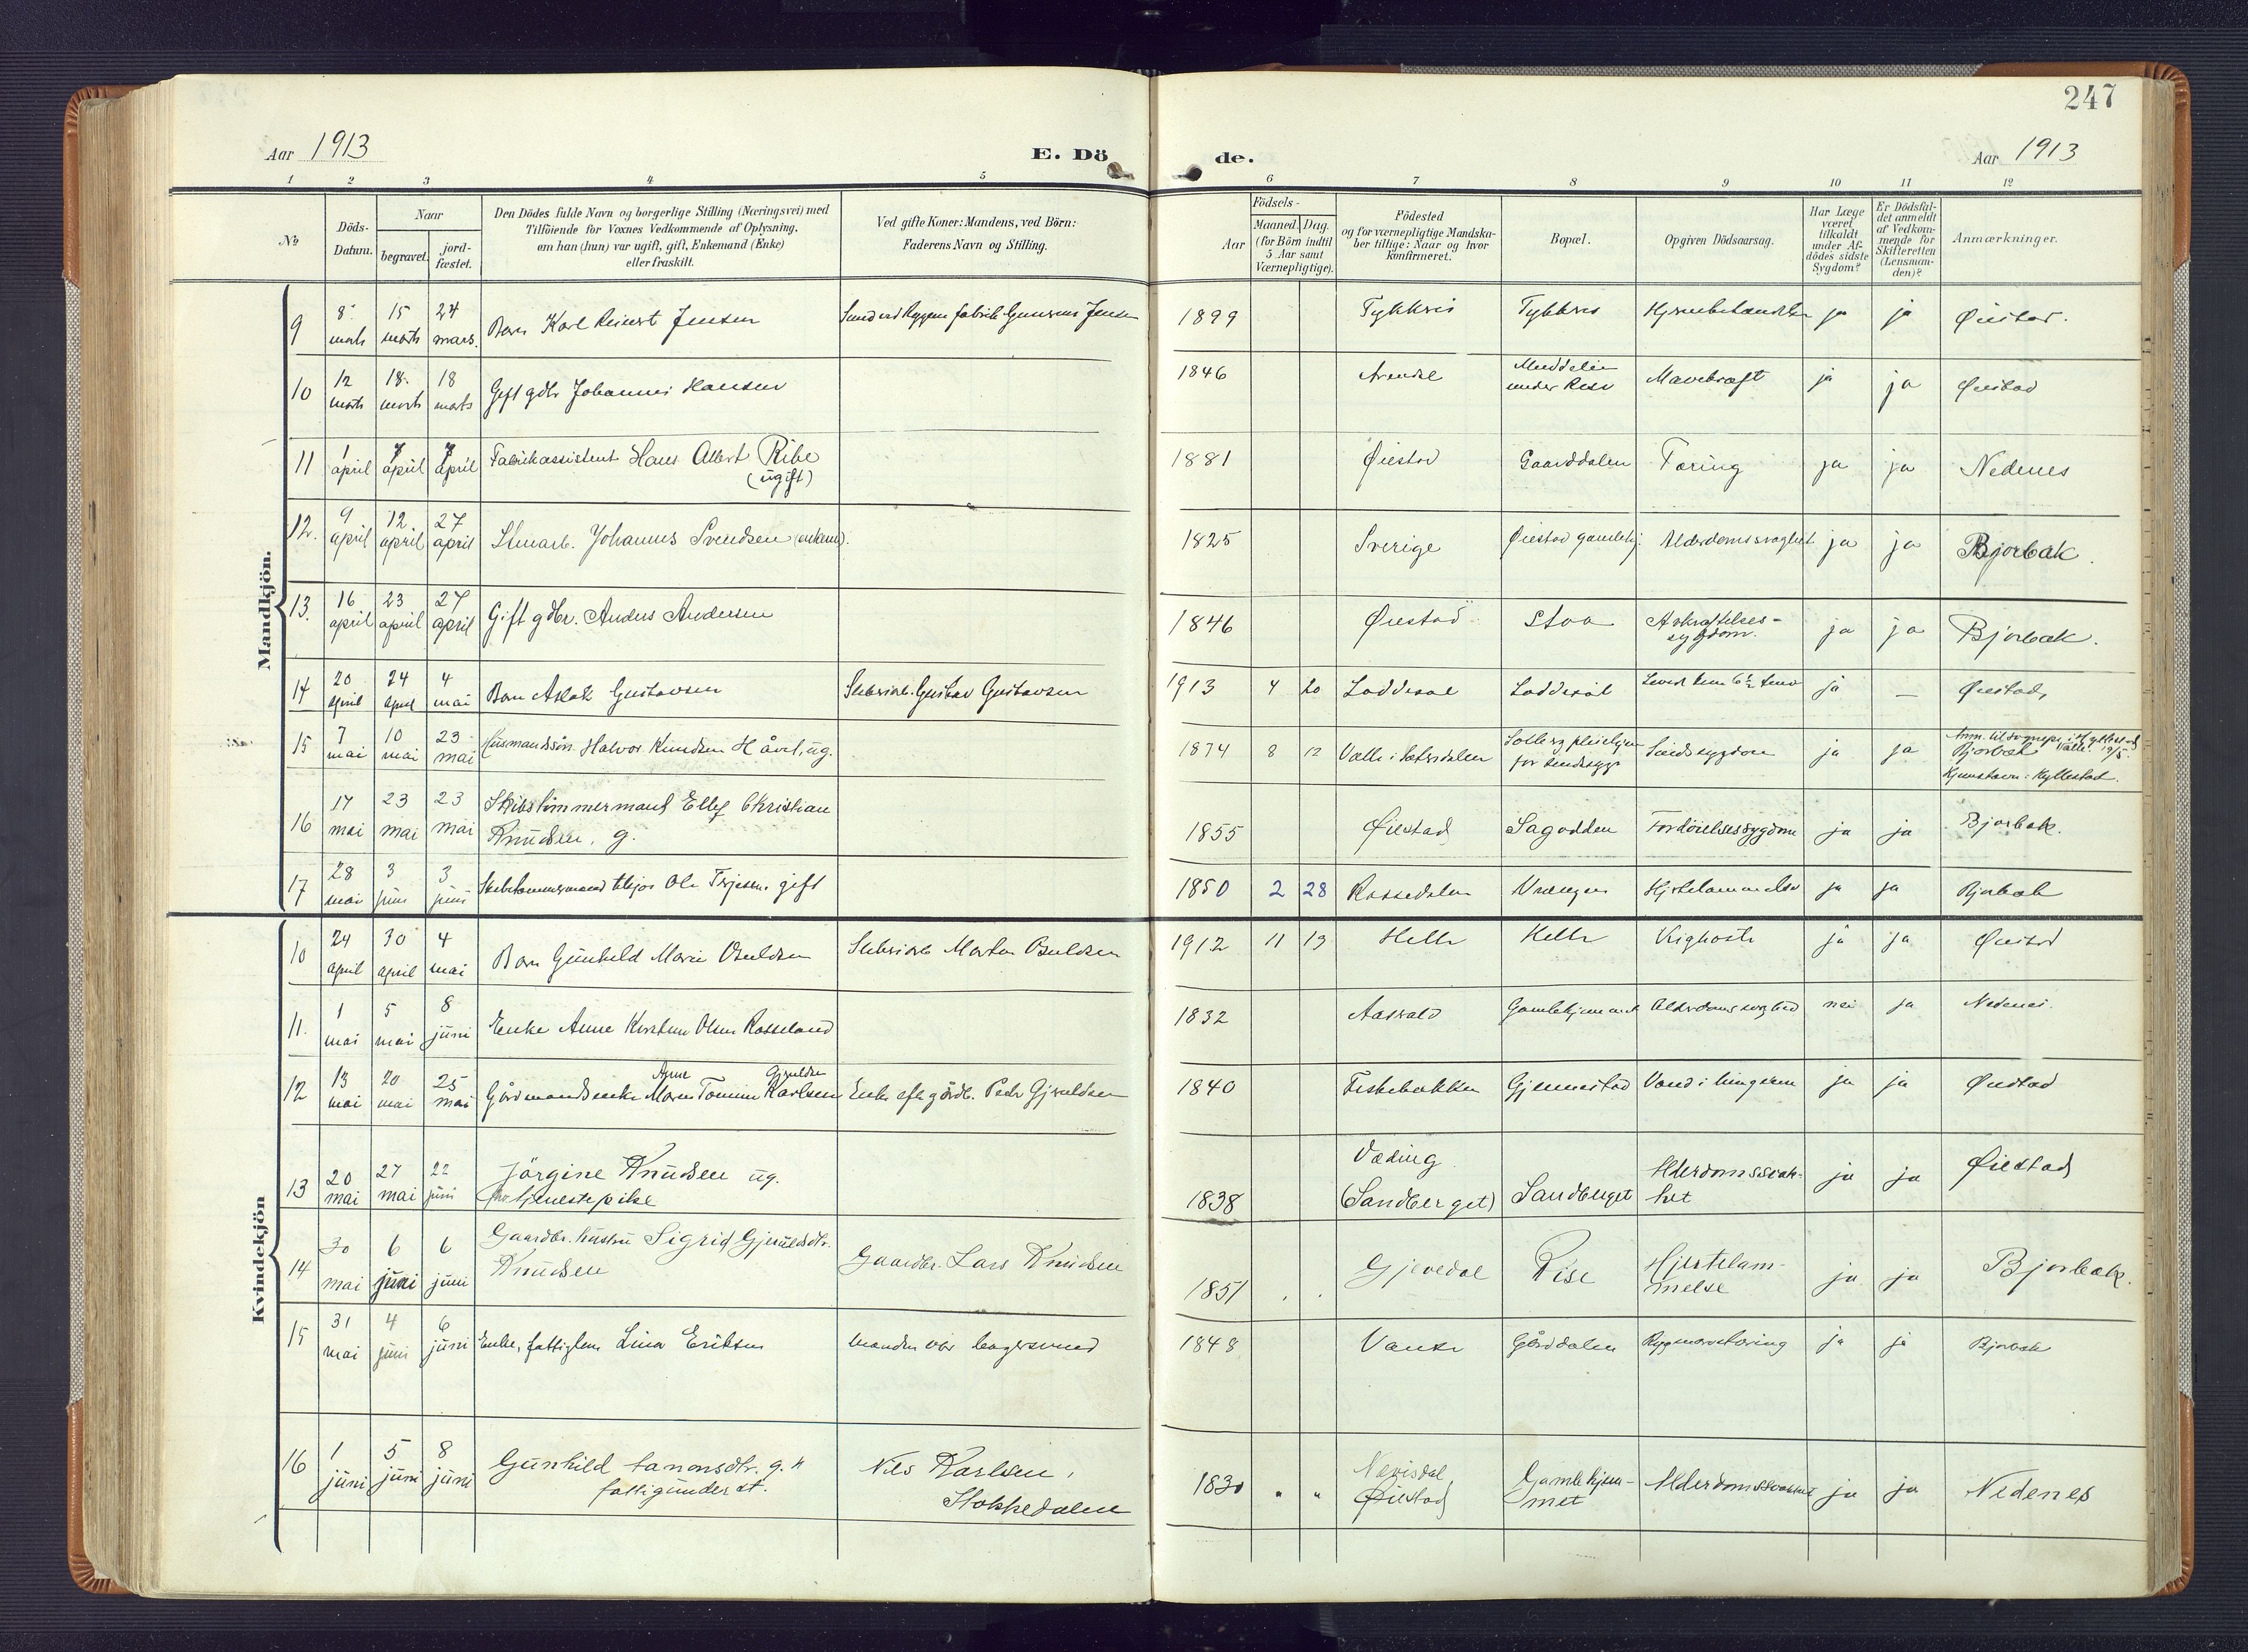 247
Aar 1913
E. Dö
de.
Aar 1913
1 2 3 4 5 6 7 8 9 10 11 12
No
Döds-
Datum.
Naar
begravet.
jord-
fæstet.
Den Dödes fulde Navn og borgerlige Stilling (Næringsvei) med
Tilföiende for Voxnes Vedkommende af Oplysning,
om han (hun) var ugift, gift, Enkemand (Enke)
eller fraskilt.
Ved gifte Koner: Mandens, ved Börn:
Faderens Navn og Stilling.
Födsels-
Aar
Maaned. Dag.
(for Börn indtil
5 Aar samt
Værnepligtige).
Födested
og for værnepligtige Mandska-
ber tillige: Naar og hvor
konfirmeret.
Bopæl.
Opgiven Dödsaarsag.
Har Læge
været
tilkaldt
under Af-
dödes sidste
Sygdom?
Er Dödsfal-
det anmeldt
af Vedkom-
mende for
Skifteretten
(Lensman-
den)?
Anmærkninger.
Mandkjön.
9 8 marts 15 marts 24 mars. Barn Karl Reinert Jensen 1899 ja ja Øiestad.
10 12 marts 18 marts 18 marts Gift gdbr Johannes Hansen 1846 Arendal
under Rise Mavekræft ja ja Øiestad
11 1 april 7 april 7 april Fabrikassistent Hans Albert Ribe
(ugift) 1881 Øiestad Gaarddalen Tæring ja ja Nedenes
12. 9 april 12 april 27 april Johannes Svendsen (enkem). 1825 Sverige Øiestad gamlehj. Alderdomssvaghet ja ja Bjorbæk.
13. 16 april 23 april 27 april Gift gdbr. Anders Andersen 1846 Øiestad Stoa Avkræftelses-
sygdom. ja ja Bjorbæk.
14 20 april 24 april 4 mai Barn Aslak Gustavsen Gustav Gustavsen 1913 4 20 Løddesøl Løddesøl Levet kun 6½ time ja — Øiestad,
15 7 mai 10 mai 23 mai Husmandssøn Halvor Knudsen ug. 1874 8 12 Valle i Sætersdalen
for sindssyge Sindssygdom ja ja Bjorbæk
16 17 mai 23 mai 23 mai Skibstømmermand Ellef Christian
Knudsen, g. 1855 Øiestad Sagodden Fordøielsessygdom ja ja Bjorbæk.
17 28 mai 3 juni 3 juni Ole Terjesen, gift 1850 2 28 Rossedalen Vrængen Hjertelammelse ja ja Bjorbæk
Kvindekjön
10 24 april 30 april 4 mai Barn Gunhild Marie Osuldsen Morten Osuldsen 1912 11 13 Helle Helle Kighoste ja ja Øiestad
11. 1 mai 5 mai 8 juni Enke Anne Kirstine Olsen Rosseland 1832 Gamlehjemmet Alderdomssvaghed nei ja Nedenes.
12 13 mai 20 mai 25 mai Anne Gjeruldsen
Gårdmandsenke Maren Tomine Karlsen Enke efter gårdb. Peder Gjeruldsen 1840 Fiskebækken Gjennestad Vand i lungerne ja ja Øiestad
13 20 mai 27 mai 22 juni Jörgine Knudsen ug.
tjenestepike 1838 Væding
(Sandberget) Sandberget Alderdomssvak-
het ja ja Øiestad
14 30 mai 6 juni 6 juni Gaardbr. hustru Sigrid Gjeruldsdtr.
Knudsen Gaardbr. Lars Knudsen 1851 Gjevedal Rise Hjertelam-
melse ja ja Bjorbæk.
15 31 mai 4 juni 6 juni Enke, fattiglem Lina Eriksen manden var bagersvend 1848 Vanse Gårddalen Rygmarvstæring ja ja Bjorbæk
16 1 juni 5 juni 8 juni Gunhild Tanonsdtr. g.
fattigunderst. Nils Karlsen,
Stokkedalen 1830 " " Nævisdal
Øiestad Gamlehjem-
met Alderdomssvakhet ja ja Nedenes